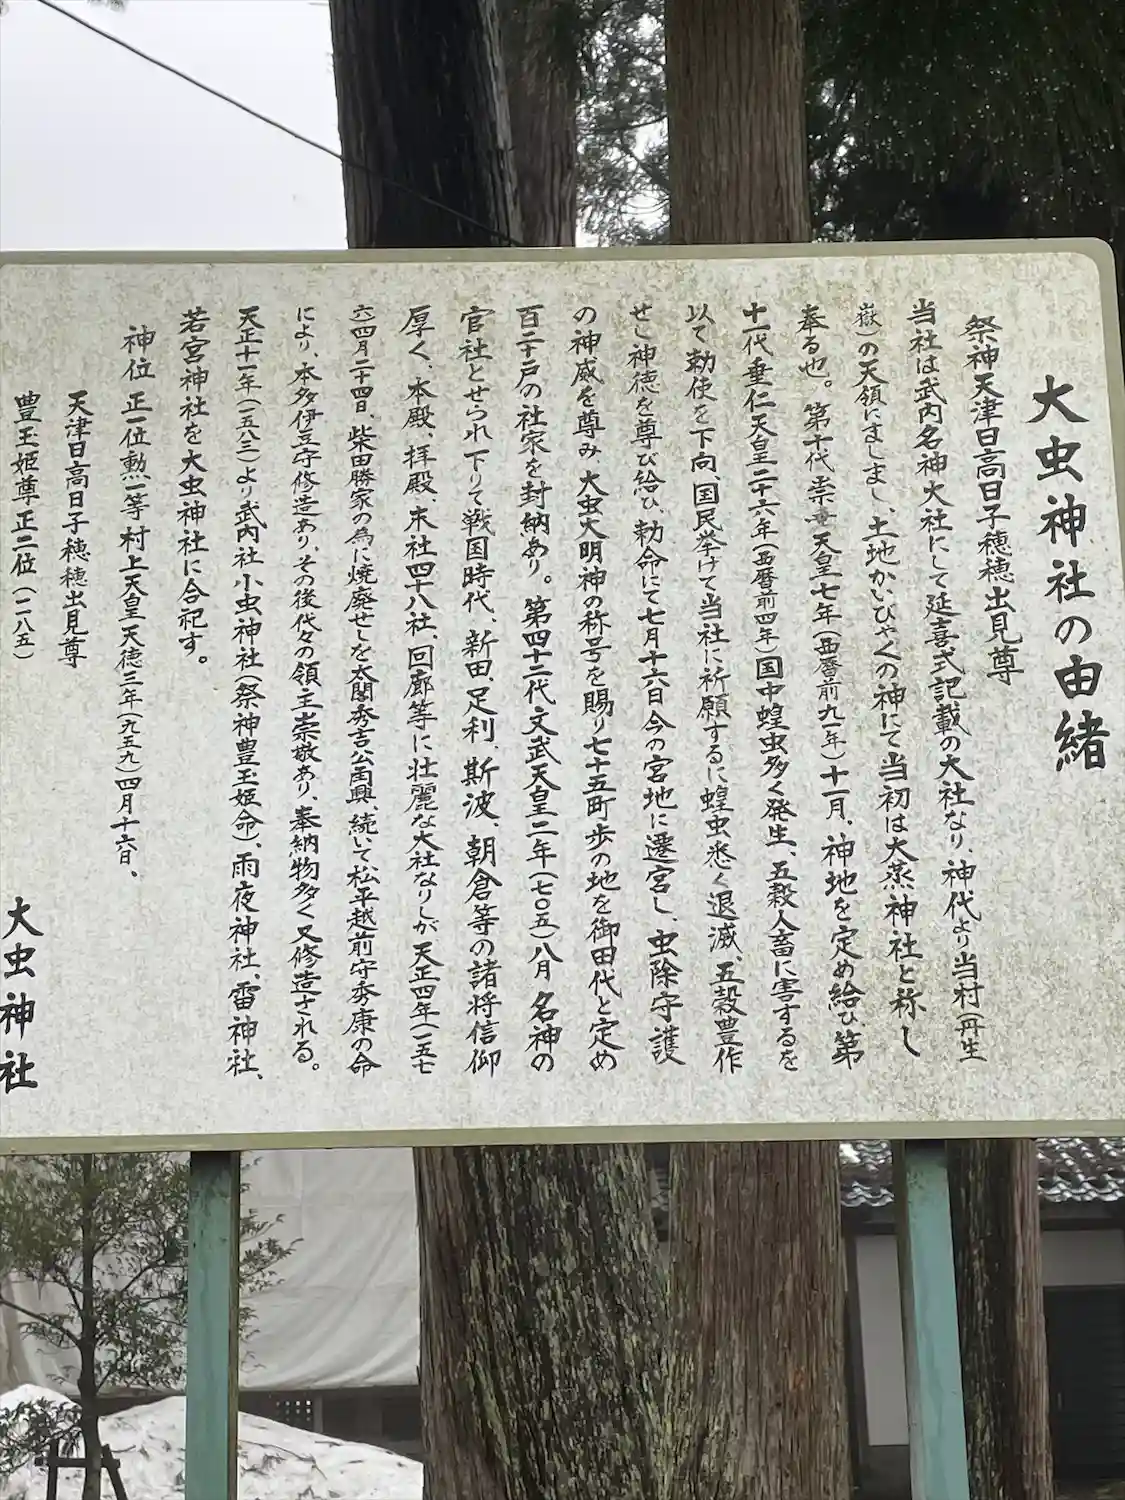 大虫神社の由緒
祭神天津日高日子穂穂出見尊
当社は式内名神大社にして延喜式記載の大社なり、神代より当村(丹生
嶽)の天領にましまし、土地かいびやくの神にて当初は大蒸神社と称し
奉る也。第十代崇神天皇七年(西暦前九一年)十一月、神地を定め給ひ、第
十一代垂仁天皇二十六年(西暦前四年)国中蝗虫多く発生、五穀人畜に害するを
以て勅使を下向、国民挙げて当社に祈願するに蝗虫悉く退滅、五穀豊作
せし神徳を尊び給ひ、勅命にて七月十六日今の宮地に遷宮し、虫除守護
の神威を尊み大虫大明神の称号を賜り七十五町歩の地を御田代と定め
百二十戸の社家を封納あり。第四十二代文武天皇二年(七〇五)八月名神の
官社とせられ下りて戦国時代、新田、足利、斯波、朝倉等の諸将信仰
厚く、本殿、拝殿、末社四十八社、回廊等に壮麗な大社なりしが天正四年(一五七
六)四月二十四日、柴田勝家の為に焼廃せしを太閤秀吉公再興、続いて松平越前守秀康の命
により、本多伊豆守修造あり、その後代々の領主崇敬あり、奉納物多く又修造される。
天正十一年(一五八三)より式内社小虫神社(祭神豊玉姫命)、雨夜神社、雷神社、
若宮神社を大虫神社に合祀す。
神位 正一位勲一等 村上天皇 天徳三年(九五九)四月十六日、
天津日高日子穂穂出見尊
豊玉姫尊正二位(一二八五)
大虫神社